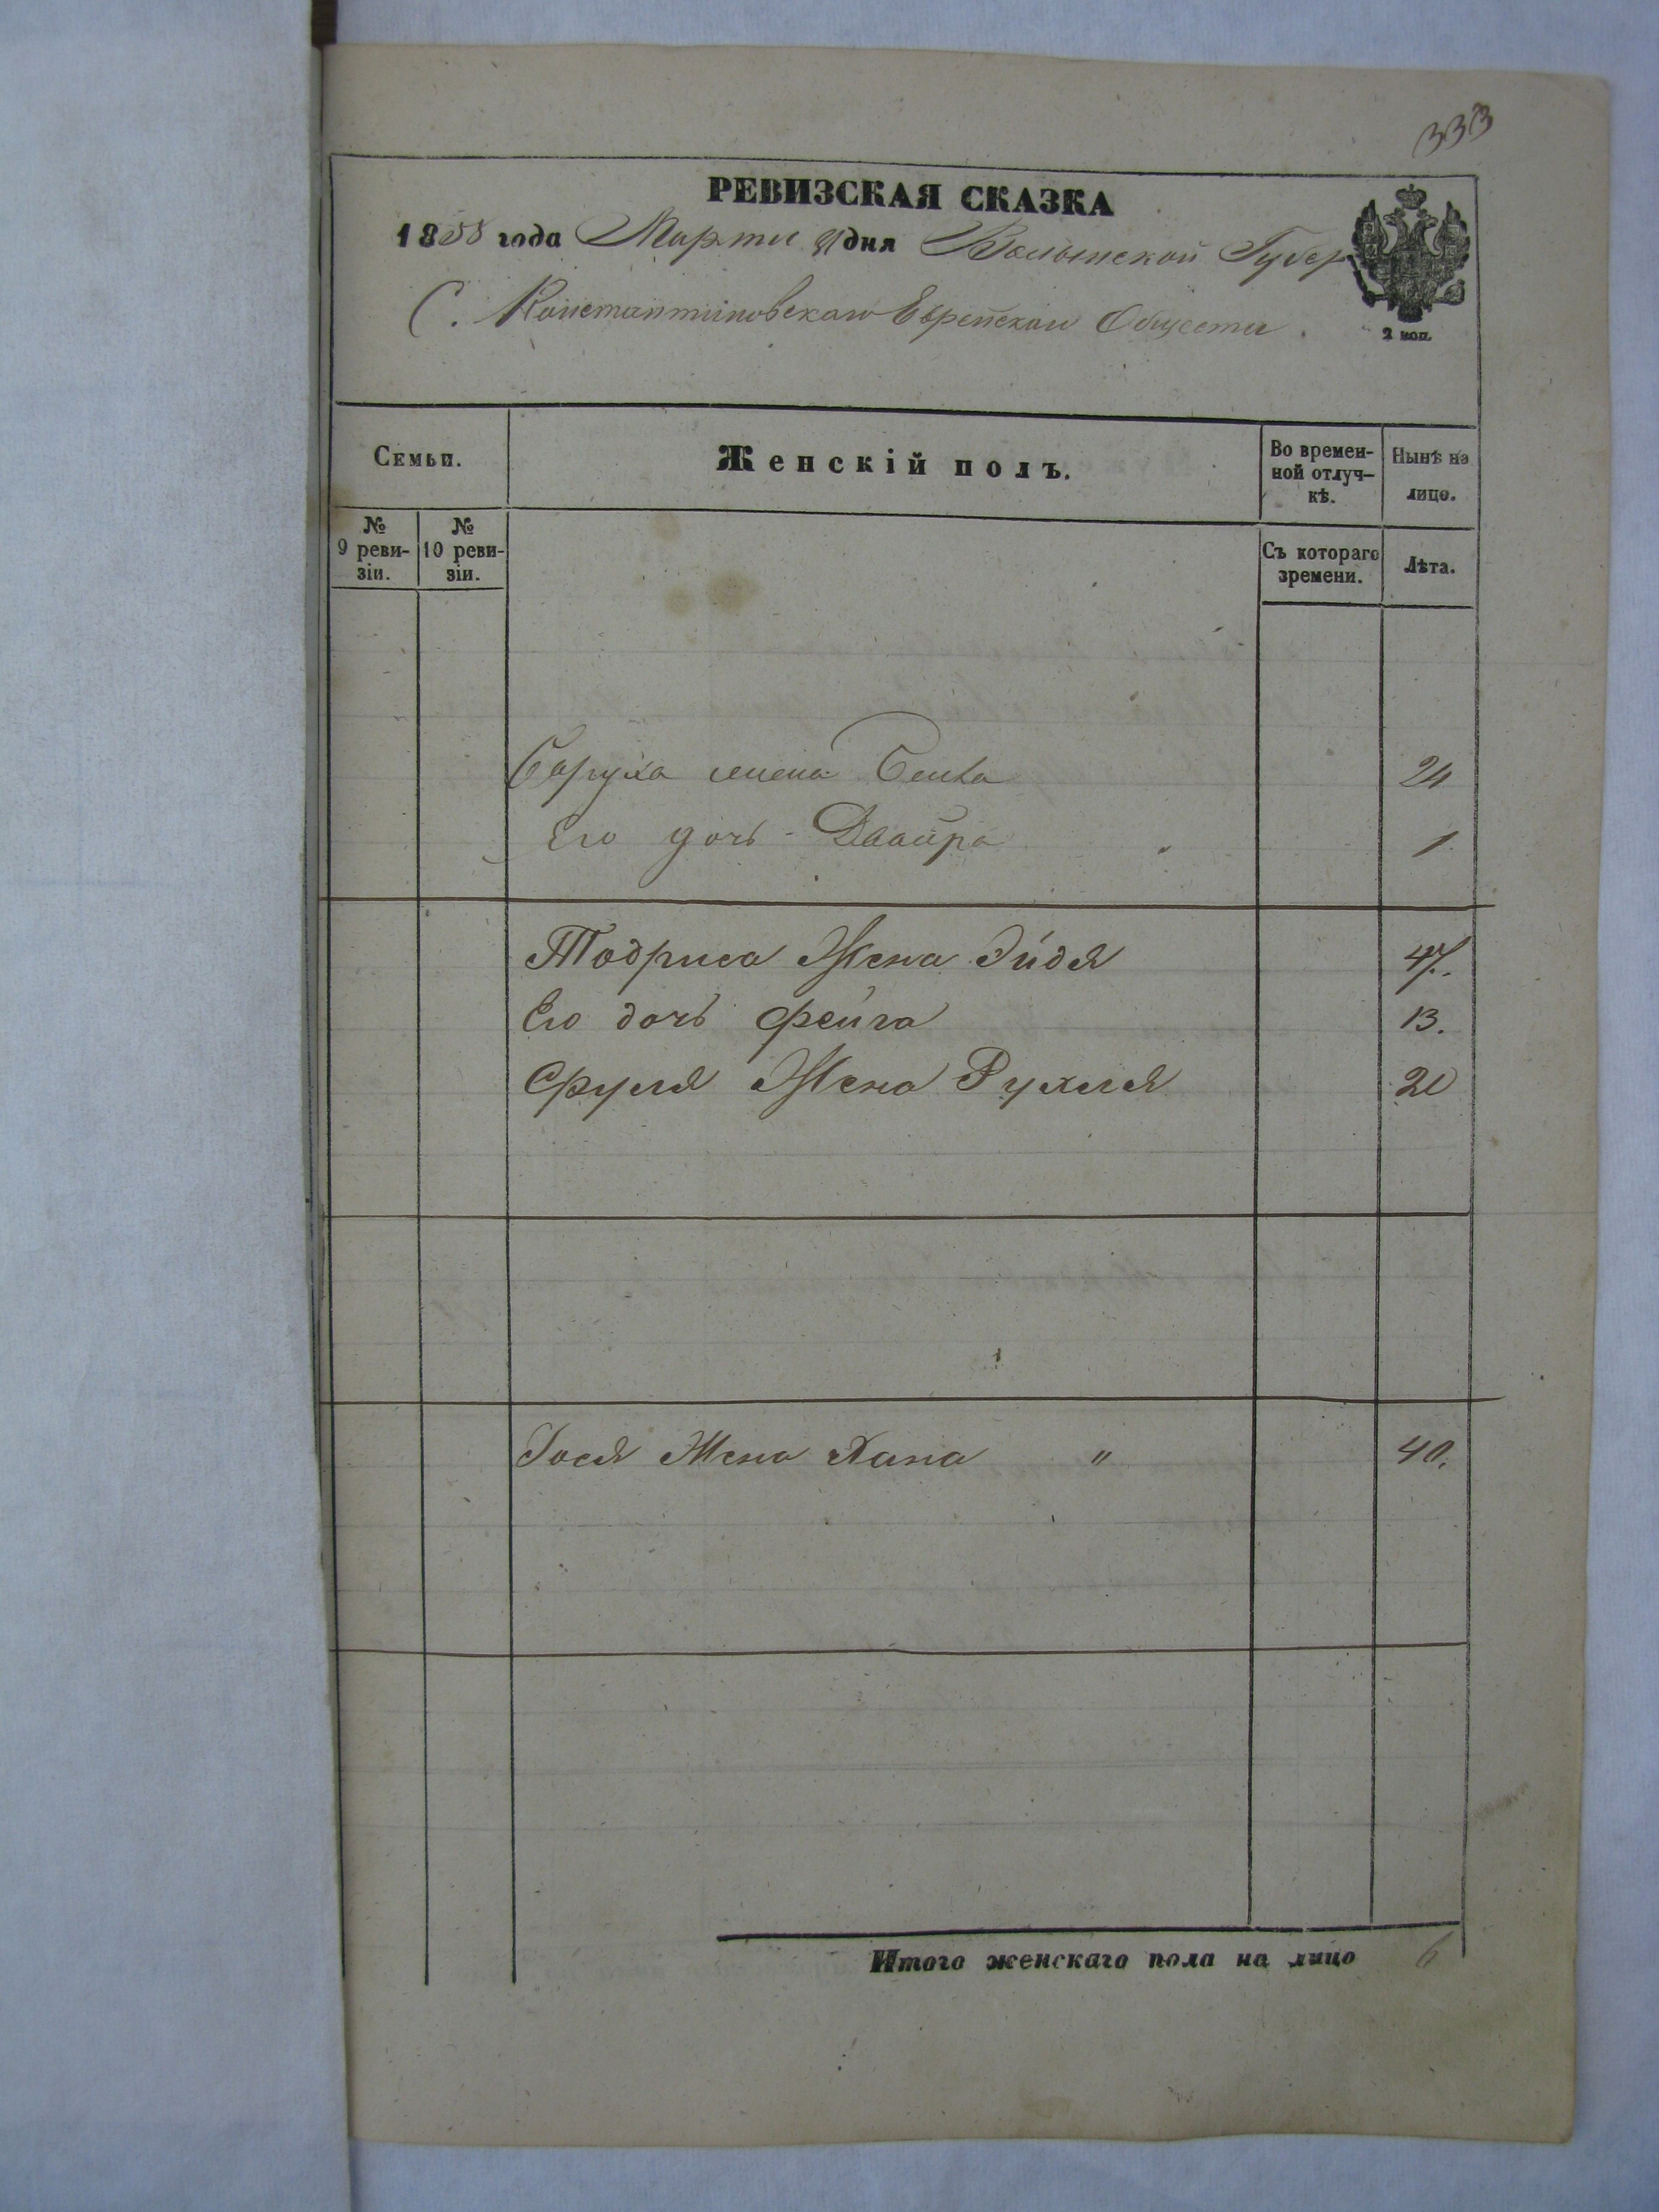 333
РЕВИЗСКАЯ СКАЗКА
1858 года Марта дня Волынской Губер
С. Константиновскаго Еврейскаго Общества.
2 коп.
Семьи.
Женскій полъ.
Во времен-
ной отлуч-
кѣ.
Нынѣ на
лицо.
№
9 реви-
зіи.
№
10 реви-
зіи.
Съ котораго
времени.
Лѣта.
Боруха жена Бейла 24
Его дочь - Двойра 1
Тодриса Жена Эйдя 47.
Его дочь Фейга 13.
Сруля Жена Рухля 20
Іося Жена Хана " 40.
Итого женскаго пола на лицо 6